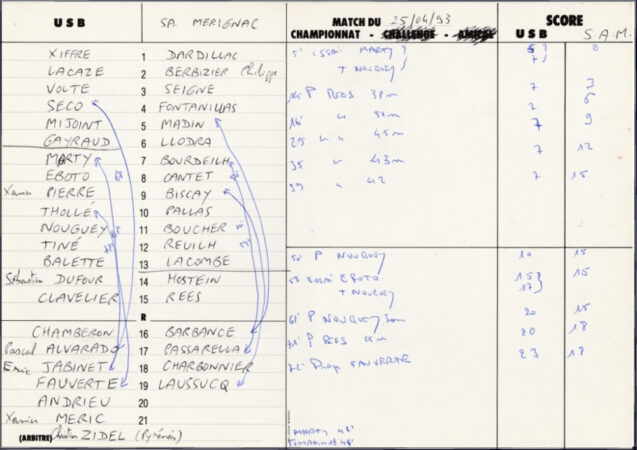 U S B SA. MERIGNAC MATCH DU 25/04/93 SCORE
CHAMPIONNAT - CHALLENGE - AMICAL U S B S.A.M.
XIFFRE 1 DARDILLAC 5' issai MARTY 5 0
LACAZE 2 BERBIZIER Philippe T NOUGUEY 7
VOLTE 3 SEIGNE 7 3
SECO 4 FONTANILLAS P REES 7 6
MIJOINT 5 MADIN 16' 7 9
GAYRAUD 6 LLODRA 29 45m
MARTY 7 BOURDEILH 35 43m 7 12
EBOTO 8 CANTET 39 42 7 15
Xavier PIERRE 9 BISCAY
THOLLÉ 10 PALLAS
NOUGUEY 11 BOUCHER
TINÉ 12 REUILH P NOUGUEY 10 15
BALETTE 13 LACOMBE EBOTO 15 15
Sébastien DUFOUR 14 MOSTEIN T NOUGUEY 17
CLAVELIER 15 REES 20 15
R 61' P NOUGUEY
CHAMBERON 16 BARBANCE P REES 20 18
Pascal ALVARADO 17 PASSARELLA 72' Drop FAUVERTE 23 18
Eric JABINET 18 CHARBONNIER
FAUVERTE 19 LAUSSUCQ
ANDRIEU 20
Xavier MERIC 21 MARTY 42'
(ARBITRE) Christian ZIDEL (Pyrénées)